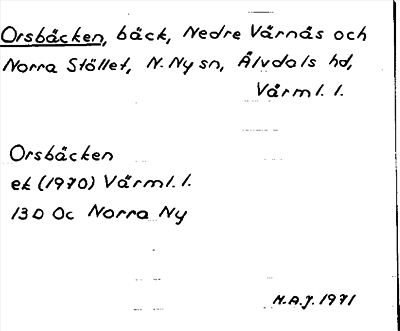 Orsbäcken, bäck, Nedre Värnäs och
Norra Stöllet, N. Ny sn, Älvdals hd,
Värml. l.
Orsbäcken
ek (1970) Värml. l.
13D 0c Norra Ny
M.A.J. 1971